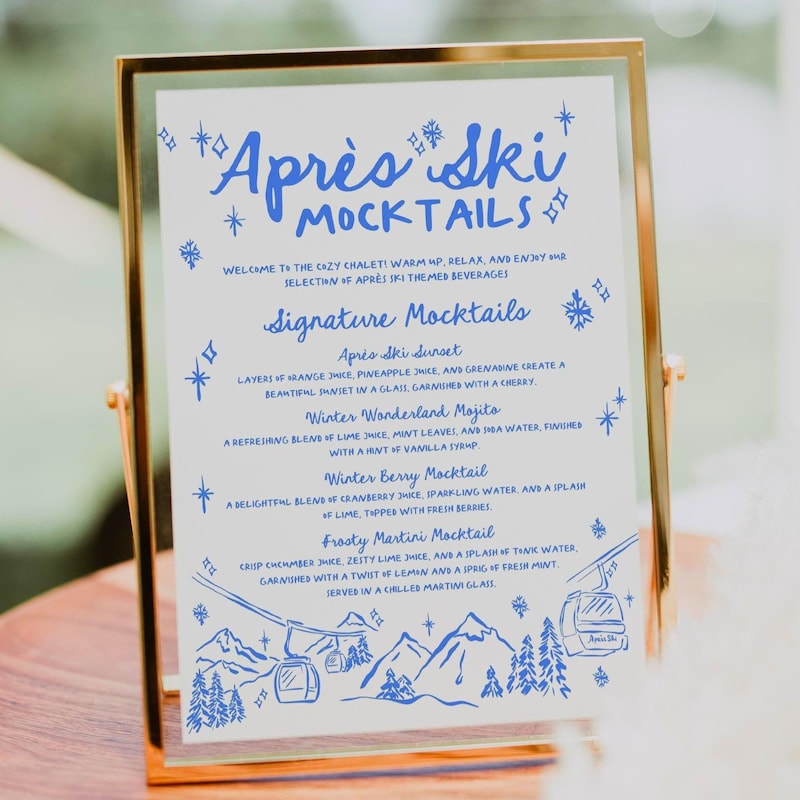 Après Ski
MOCKTAILS
WELCOME TO THE COZY CHALET! WARM UP, RELAX, AND ENJOY OUR
SELECTION OF APRÈS SKI THEMED BEVERAGES
Signature Mocktails
Après Ski Sunset
LAYERS OF ORANGE JUICE, PINEAPPLE JUICE, AND GRENADINE CREATE A
BEAUTIFUL SUNSET IN A GLASS, GARNISHED WITH A CHERRY.
Winter Wonderland Mojito
A REFRESHING BLEND OF LIME JUICE, MINT LEAVES, AND SODA WATER, FINISHED
WITH A HINT OF VANILLA SYRUP.
Winter Berry Mocktail
A DELIGHTFUL BLEND OF CRANBERRY JUICE, SPARKLING WATER, AND A SPLASH
OF LIME, TOPPED WITH FRESH BERRIES.
Frosty Martini Mocktail
CRISP CUCUMBER JUICE, ZESTY LIME JUICE, AND A SPLASH OF TONIC WATER,
GARNISHED WITH A TWIST OF LEMON AND A SPRIG OF FRESH MINT.
SERVED IN A CHILLED MARTINI GLASS.
Après Ski